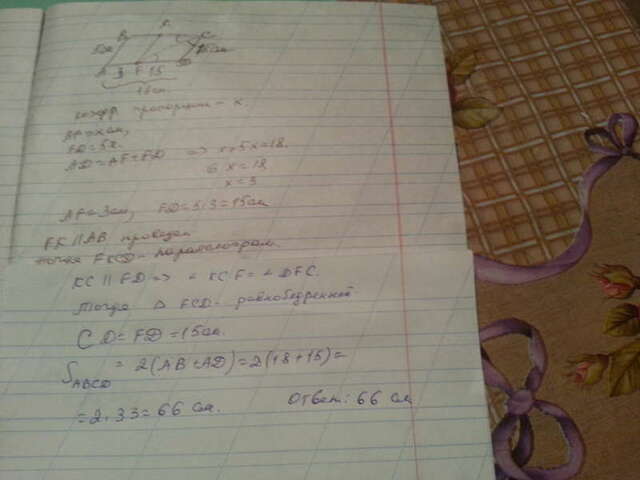 B K C
15см
A 3 F 15 D
18см
коэфф. пропорции - x
AF = x см,
FD = 5x.
AD = AF + FD => x+5x=18.
6x=18
x=3
AF = 3см, FD = 5·3=15см
FK || AB проведем
тогда FKCD - параллелограм.
KC || FD => ∠ KCF = ∠ DFC.
Тогда △ FCD - равнобедренный.
CD = FD = 15см.
S ABCD = 2(AB+AD)=2(18+15)=
=2·33=66 см. Ответ: 66 см